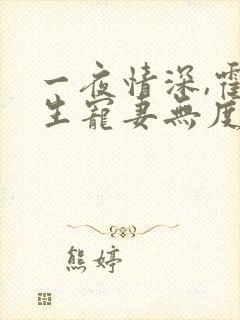 一夜情深,霍
生寵妻無度
熊婷